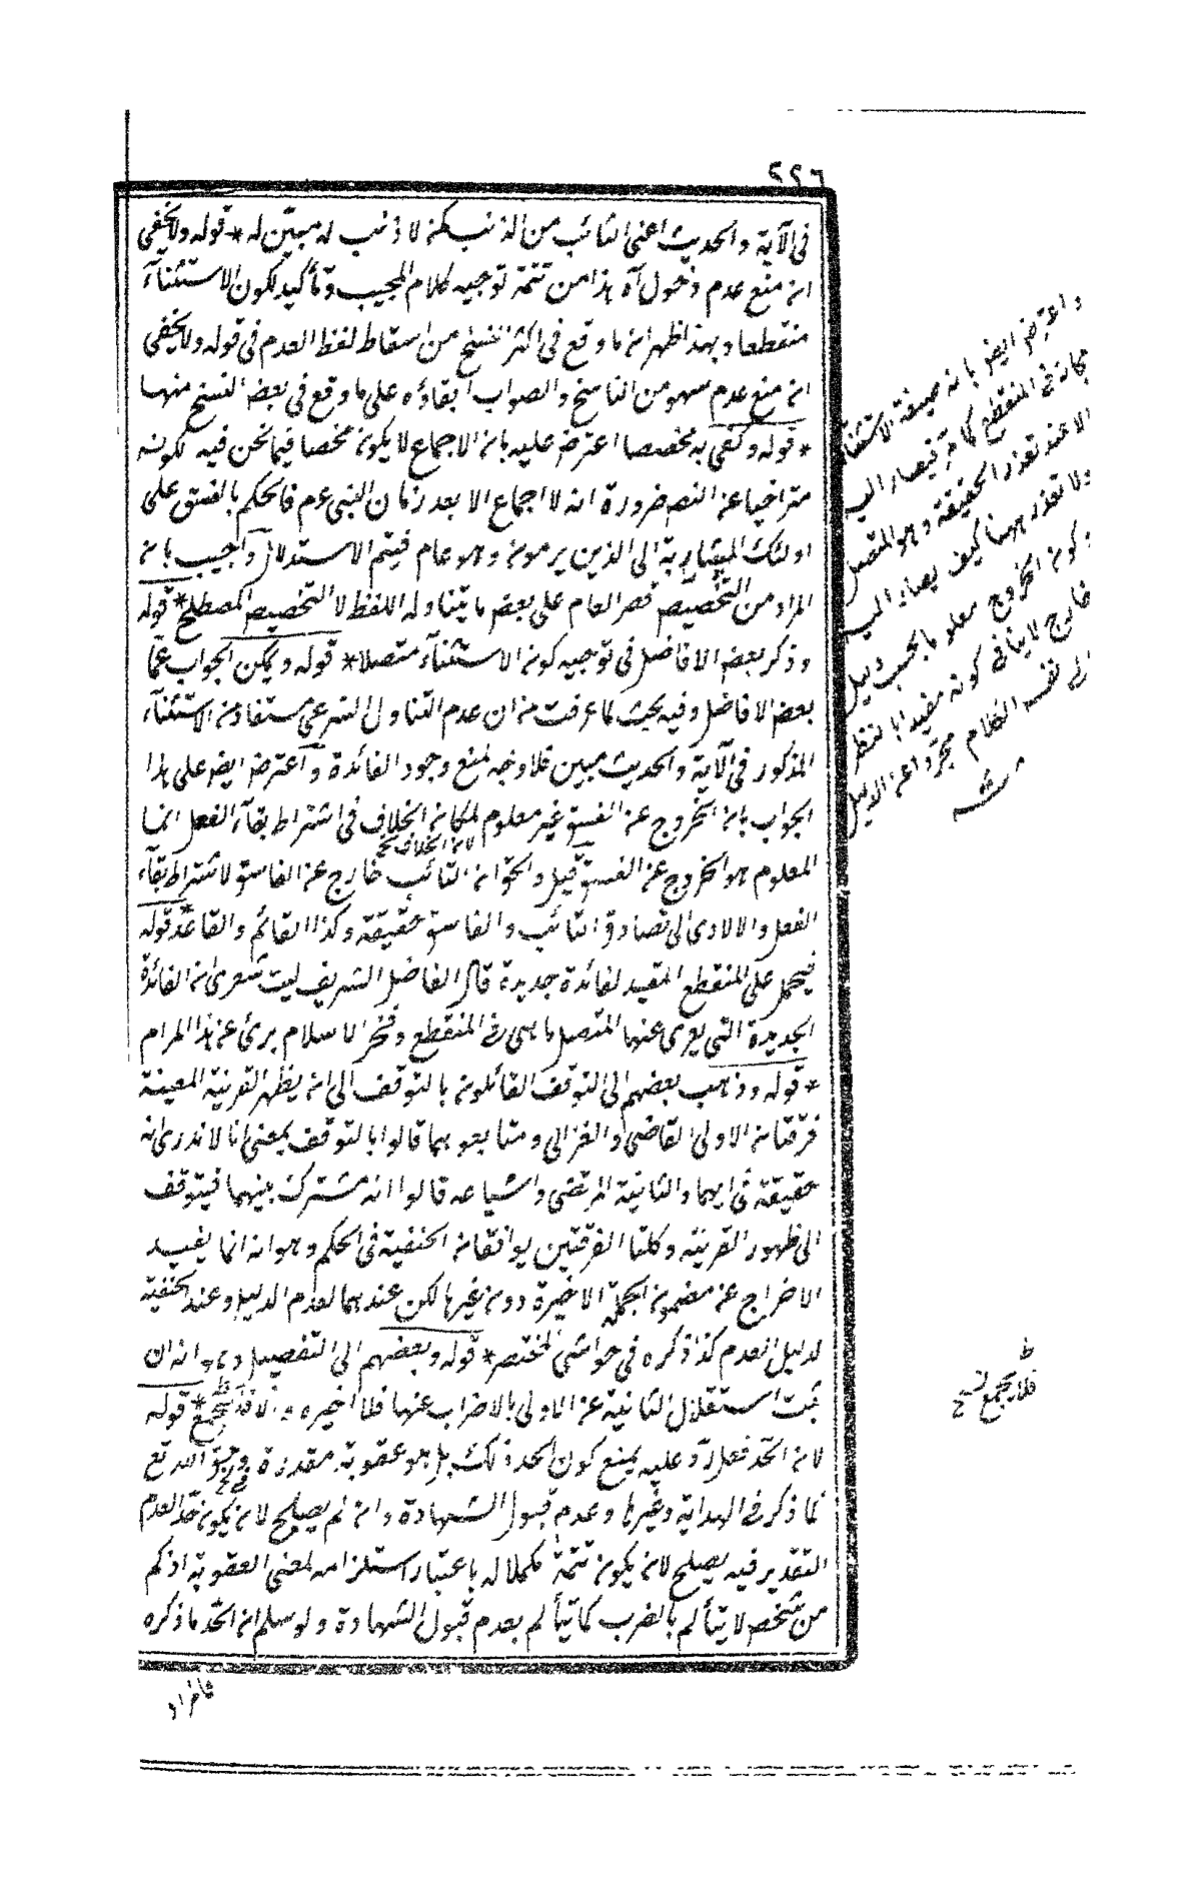 ٢٢٦
في الآية والحديث اعني التائب من الذنب كمن لا ذنب له مبين له * قوله ولا يخفى
ان منع عدم دخول آه هذا من تتمة توجيه كلام المجيب وتأكيد لكون الاستثنآء
منقطعا وبهذا ظهر ان ما وقع في اكثر النسخ من اسقاط لفظ العدم في قوله ولا يخفى
ان منع عدم سهو من الناسخ والصواب ابقاؤه على ما وقع في بعض النسخ منها
* قوله وكفى به مخصصا اعترض عليه بان الاجماع لا يكون مخصصا فيما نحن فيه لكونه
متراخيا عن النص ضرورة انه لا اجماع الا بعد زمان النبي عم فالحكم بالفسق على
اولئك المشار به الى الذين يرمون وهو عام فيتم الاستدلال واجيب بان
المراد من التخصيص قصر العام على بعض ما يتناوله اللفظ لا التخصيص المصطلح * قوله
وذكر بعض الافاضل في توجيه كون الاستثنآء متصلا * قوله ويمكن الجواب عما
بعض الافاضل وفيه بحث لما عرفت من ان عدم التناول الشرعي مستفاد من الاستثنآء
المذكور في الآية والحديث مبين فلا وجه لمنع وجود الفائدة واعترض ايض على هذا
الجواب بان الخروج عن الفسق غير معلوم لمكان الخلاف في اشتراط بقآء الفعل انما
لان الخلاف نخ
المعلوم هو الخروج عن الفسق قيل والحق ان التائب خارج عن الفاسق لاشتراط بقآء
الفعل والا لادى الى تصادق التائب والفاسق حقيقة وكذا القائم والقاعد * قوله
فيحمل على المنقطع المقيد لفائدة جديدة قال الفاضل الشريف ليت شعرى ان الفائدة
الجديدة التي يعرى عنها المتصل ما هي في المنقطع وفخر الاسلام برئ عن هذا المرام
* قوله وذهب بعضهم الى التوقف القائلون بالتوقف الى ان يظهر القرينة المعينة
فرقتان الاولى القاضي والغزالي ومتابعوهما قالوا بالتوقف بمعنى انا لا ندرى انه
حقيقة في ايهما والثانية المرتضى واشياعه قالوا انه مشترك بينهما فيتوقف
الى ظهور القرينة وكلتا الفرقتين يوافقان الحنفية في الحكم وهو انه انما يفيد
الاخراج عن مضمون الجملة الاخيرة دون غيرها لكن عندهما لعدم الدليل وعند الحنفية
لدليل العدم كذا ذكره في حواشي المختصر * قوله وبعضهم الى التفصيل وهو انه ان
ثبت استقلال الثانية عن الاولى بالاضراب عنها فللاخيره والا فللجميع * قوله
لان الحد فعل آه وعليه يمنع كون الحد ذلك بل هو عقوبة مقدرة وجبت حق الله تع
كما ذكر في الهداية وغيرها وعدم قبول الشهادة وان لم يصلح لان يكون حد العدم
التقدير فيه يصلح لان يكون تتمة مكملا له باعتبار استلزامه لمعنى العقوبة اذ كم
من شخص لا يتألم بالضرب كما يتألم بعدم قبول الشهادة ولو سلم ان الحد ما ذكره
واعترض ايض بانه صيغة الاستثنآء
مجاز في المنقطع كما مر فيصار اليه
الا عند تعذر الحقيقة وهو المتصل
ولا تعذر ههنا كيف يصار اليه
وكون الخروج معلوما بحسب دليل
خارج لا ينافي كونه مفيدا بالنظر
الى نفس الكلام مجردا عن الدليل
منه
ظ
فللجميع نسخ